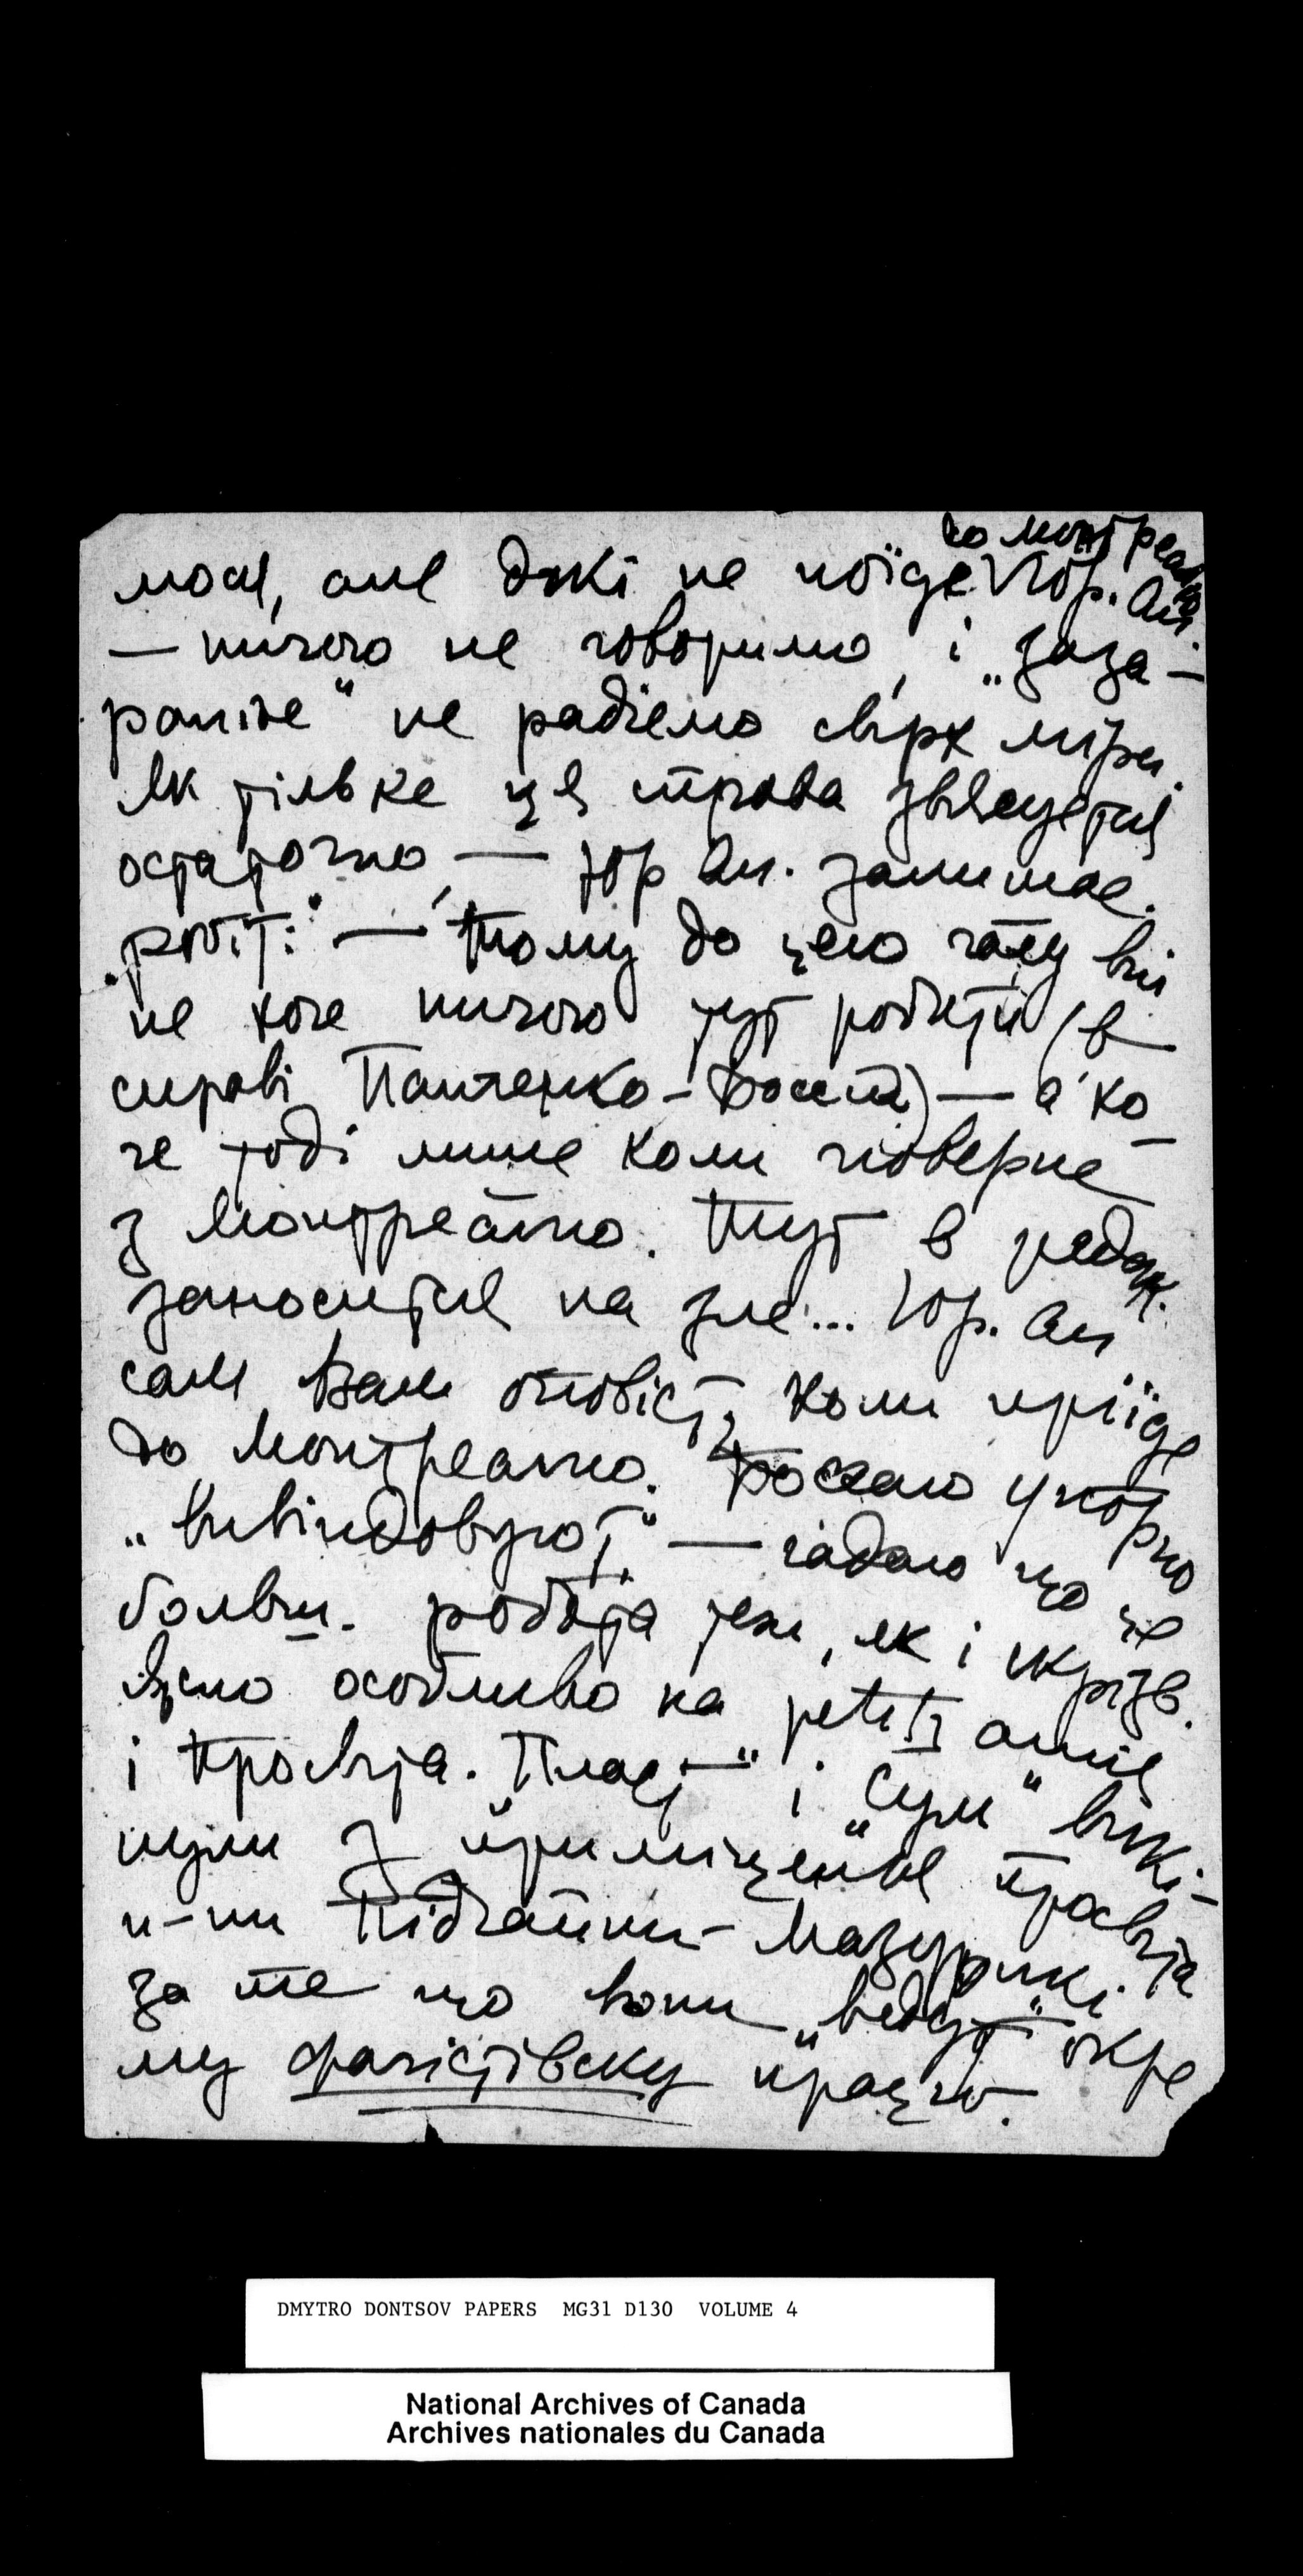 до Монтреалю
мося, але докі не поїде Юр. Ан.
— нічого не говоримо, і „заза-
раніє" не радіємо свірх міри.
Як тільке ця справа звясуется
остаточно, — Юр Ан. залишае.
роботі — Тому до цего часу він
не хоче нічого тут робити (в
справі Панченко-Босий) — а хо-
че тоді лише коли поверне
з Монтреалю. Тут в редак.
заноситця на зле... Юр. Ан
сам Вам оповість коли приїде
до Монтреалю. упорно
„ — гадаю що це
больш. робота там, як і скрізь.
Ясно особливо на
і Просвіта. „Пласт" і „Сум" викі-
нули з приміщення Просвіта
п-ни Підгайни-
за те що вони „ведут" окре
му фашістівску працю.
DMYTRO DONTSOV PAPERS MG31 D130 VOLUME 4
National Archives of Canada
Archives nationales du Canada